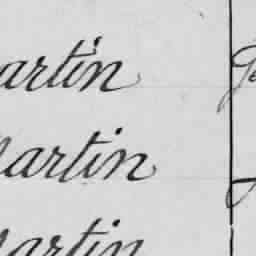 artin
Martin
Martin